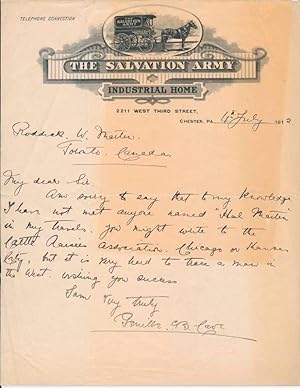 TELEPHONE CONNECTION
THE SALVATION ARMY
INDUSTRIAL HOME
2211 WEST THIRD STREET,
CHESTER, PA. July 191
W.
Toronto. Canada.
My dear Sir
Am sorry to say that to my Knowledge
I have not met anyone named "Hal
in my travels. you might write to the
Cattle Raisers Association. Chicago or Kansas
City, but it is very hard to trace a man in
the West. wishing you success
I am Very truly